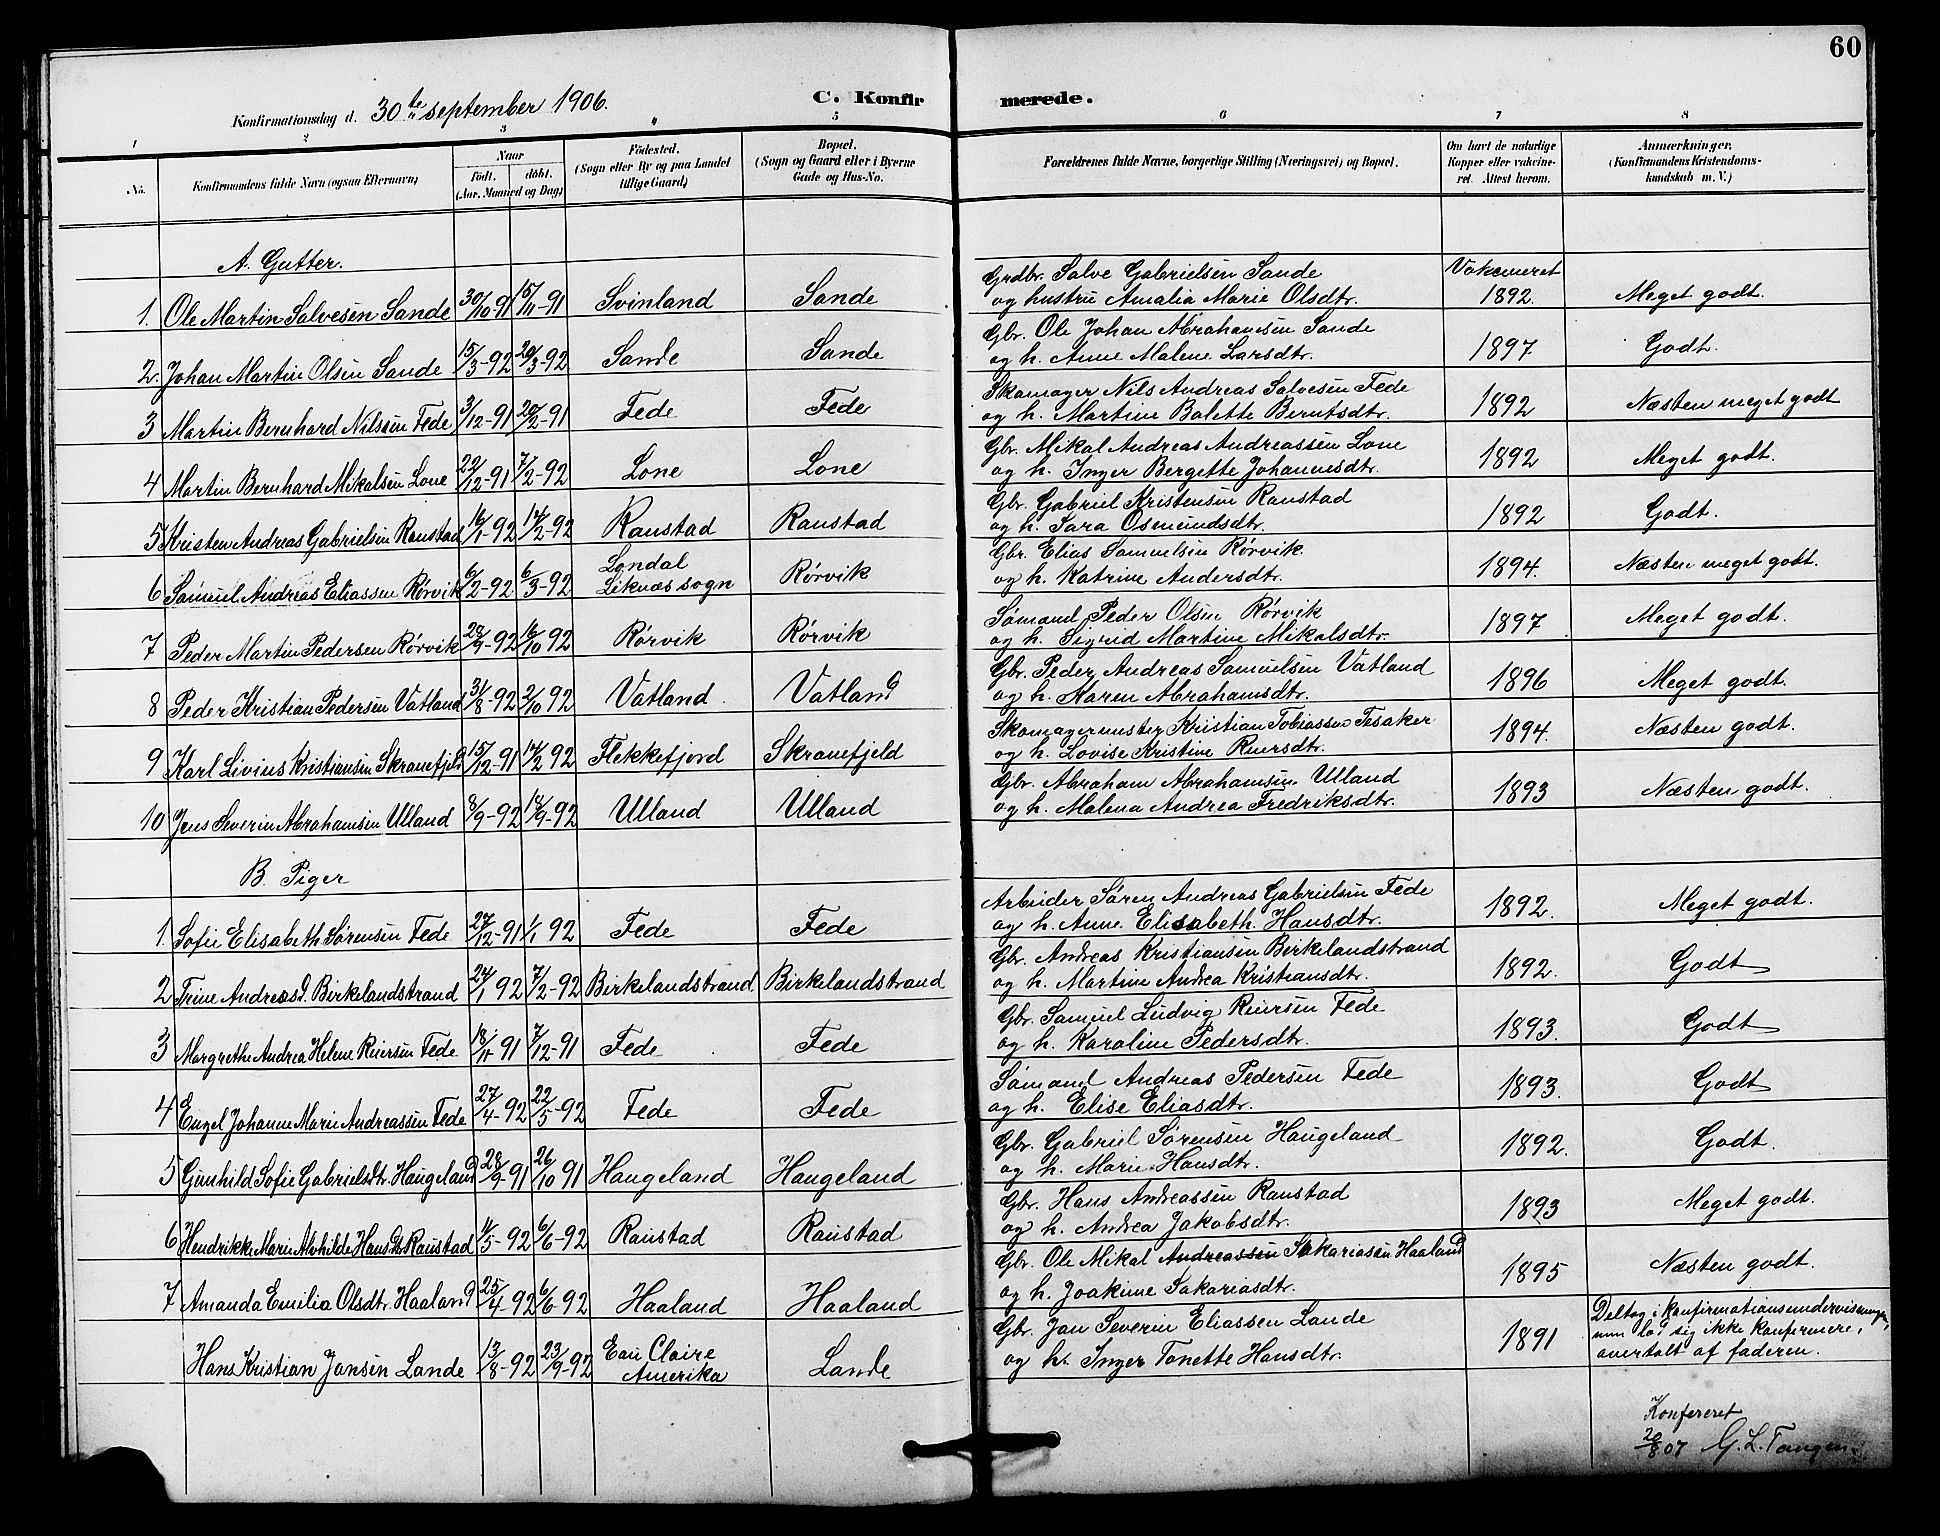 60
Konfirmationsdag d. 30te september 1906.
C. Konfirmerede.
1 2 3 4 5 6 7 8
No. Konfirmandens fulde Navn (ogsaa Efternavn) Naar Født. døbt. (Aar, Maaned og Dag) Fødested. (Sogn eller By og paa Landet tillige Gaard) Bopæl. (Sogn og Gaard eller i Byerne Gade og Hus-No. Forældrenes fulde Navne, borgerlige Stilling (Næringsvei) og Bopæl. Om havt de naturlige Kopper eller vakcineret. Attest herom. Anmærkninger. (Konfirmandens Kristendomskundskab m. V.)
A. Gutter.
1. Ole Martin Salvesen Sande 30/10-91 15/11-91 Svinland Sande Grdbr. Salve Gabrielsen Sande og hustru Amalia Marie Olsdtr. Vakcineret 1892. Meget godt.
2. Johan Martin Olsen Sande 15/3-92 20/3-92 Sande Sande Gbr. Ole Johan Abrahamsen Sande og h. Anne Malene Larsdtr. 1897 Godt.
3 Martin Bernhard Nilsen Fede 3/12-91 20/2-91 Fede Fede Skomager Nils Andreas Salvesen Fede og h. Martine Bolette Berntsdtr. 1892 Næsten meget godt
4 Martin Bernhard Mikalsen Lone 22/12-91 7/2-92 Lone Lone Gbr. Mikal Andreas Andreassen Lone og h. Inger Bergette Johannesdtr. 1892 Meget godt.
5 Kristen Andreas Gabrielsen Raustad 16/1-92 14/2-92 Raustad Raustad Gbr. Gabriel Kristensen Raustad og h. Sara Osmundsdtr. 1892 Godt.
6 Samuel Andreas Eliassen Rørvik 6/2-92 6/3-92 Londal Liknæs sogn Rørvik Gbr. Elias Samuelsen Rørvik og h. Katrine Andersdtr. 1894. Næsten meget godt.
7 Peder Martin Pedersen Rørvik 28/9-92 16/10 92 Rørvik Rørvik Sømand Peder Olsen Rørvik og h. Sigrid Martine Mikalsdtr. 1897 Meget godt.
8 Peder Kristian Pedersen Vatland 31/8-92 2/10 92 Vatland. Vatland Gbr. Peder Andreas Samuelsen Vatland og h. Karen Abrahamsdtr. 1896 Meget godt.
9 Karl Livius Kristiansen Skranefjeld 15/12-91 14/2 92 Flekkefjord Skranefjeld Skomagermester Kristian Tobiassen Tesaker og h. Lovise Kristine Reiersdtr. 1894. Næsten godt.
10 Jens Severin Abrahamsen Ulland 8/9-92 18/9-92 Ulland Ulland Gbr. Abraham Abrahamsen Ulland og h. Malena Andrea Fredriksdtr. 1893 Næsten godt.
B. Piger
1. Sofie Elisabeth Sørensen Fede 27/12-91 1/1 92 Fede Fede Arbeider Søren Andreas Gabrielsen Fede og h. Anne Elisabeth Hansdtr. 1892. Meget godt.
2 Trine Andreasd. Birkelandstrand 24/1 92 7/2-92 Birkelandstrand Birkelandstrand Gbr. Andreas Kristiansen Birkelandstrand og h. Martine Andrea Kristiansdtr. 1892. Godt
3 Margrethe Andrea Helene Reiersen Fede 18/11 91 7/12-91 Fede Fede Gbr. Samuel Ludvig Reiersen Fede og h. Karoline Pedersdtr. 1893. Godt
4 Engel Johanne Marie Andreassen Fede 27/4-92 22/5-92 Fede Fede Sømand Andreas Pedersen Fede og h. Elise Eliasdtr. 1893. Godt
5 Gunhild Sofie Gabrielsdtr. Haugeland 28/9-91 26/10 91 Haugeland Haugeland Gbr. Gabriel Sørensen Haugeland og h. Marie Hansdtr. 1892. Godt.
6 Hendrikke Marie Alvhilde Hansdtr Raustad 1/5-92 6/6-92 Raustad Raustad Gbr. Hans Andreassen Raustad og h. Andrea Jakobsdtr. 1893 Meget godt.
7 Amanda Emilia Olsdtr. Haaland 25/4-92 6/6-92 Haaland Haaland Gbr. Ole Mikal Andreassen Sakariasen Haaland og h. Joakime Sakariasdtr. 1895 Næsten godt.
Hans Kristian Jansen Lande 13/8-92 23/9-92 Eau Claire Amerika Lande Gbr. Jan Severin Eliassen Lande og h. Inger Tonette Hansdtr. 1891 Deltog i konfirmationsundervisningen, men lod sig ikke konfirmere, overtalt af faderen.
Konfereret
20/8 07 G. L. Tangen.